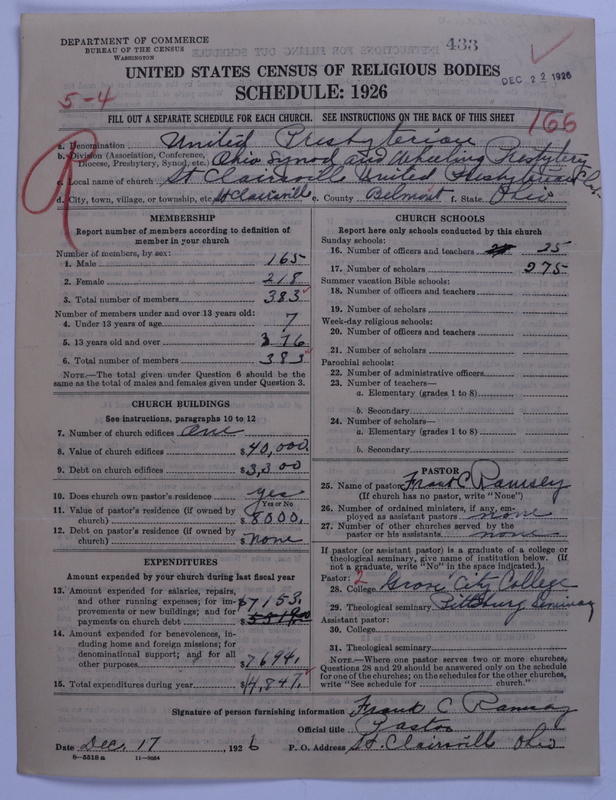 433
DEPARTMENT OF COMMERCE
BUREAU OF THE CENSUS
WASHINGTON
INSTRUCTIONS FOR FILLING OUT SCHEDULE
UNITED STATES CENSUS OF RELIGIOUS BODIES
DEC 22 1926
SCHEDULE: 1926
5-4
FILL OUT A SEPARATE SCHEDULE FOR EACH CHURCH. SEE INSTRUCTIONS ON THE BACK OF THIS SHEET
166
R
a. Denomination United Presbyterian
b. Division (Association, Conference, Diocese, Presbytery, Synod, etc.) Ohio Synod and Wheeling Presbytery
c. Local name of church St Clairsville United Presbyterian Ch.
d. City, town, village, or township, etc. St Clairsville e. County Belmont f. State Ohio
MEMBERSHIP
Report number of members according to definition of
member in your church
Number of members, by sex:
1. Male 165
2. Female 218
3. Total number of members 383
Number of members under and over 13 years old:
4. Under 13 years of age 7
5. 13 years old and over 376
6. Total number of members 383
NOTE.—The total given under Question 6 should be the
same as the total of males and females given under Question 3.
CHURCH BUILDINGS
See instructions, paragraphs 10 to 12
7. Number of church edifices One
8. Value of church edifices $40,000.
9. Debt on church edifices $3,300
10. Does church own pastor's residence yes
Yes or No
11. Value of pastor's residence (if owned by
church) $8000.
12. Debt on pastor's residence (if owned by
church) $none
EXPENDITURES
Amount expended by your church during last fiscal year
13. Amount expended for salaries, repairs,
and other running expenses; for im-
provements or new buildings; and for
payments on church debt $7153.
14. Amount expended for benevolences, in-
cluding home and foreign missions; for
denominational support; and for all
other purposes $7694.
15. Total expenditures during year $14,847.
CHURCH SCHOOLS
Report here only schools conducted by this church
Sunday schools:
16. Number of officers and teachers 25
17. Number of scholars 275
Summer vacation Bible schools:
18. Number of officers and teachers
19. Number of scholars
Week-day religious schools:
20. Number of officers and teachers
21. Number of scholars
Parochial schools:
22. Number of administrative officers
23. Number of teachers—
a. Elementary (grades 1 to 8)
b. Secondary
24. Number of scholars—
a. Elementary (grades 1 to 8)
b. Secondary
PASTOR
25. Name of pastor Frank C Ramsey
(If church has no pastor, write "None")
26. Number of ordained ministers, if any, em-
ployed as assistant pastors none
27. Number of other churches served by the
pastor or his assistants none
If pastor (or assistant pastor) is a graduate of a college or
theological seminary, give name of institution below. (If
not a graduate, write "No" in the space indicated.)
Pastor: 2
28. College Grove City College
29. Theological seminary Pittsburg Seminary
Assistant pastor:
30. College
31. Theological seminary
NOTE.—Where one pastor serves two or more churches,
Questions 28 and 29 should be answered only on the schedule
for one of the churches; on the schedules for the other churches,
write "See schedule for church."
Signature of person furnishing information Frank C Ramsey
Official title Pastor
Date Dec. 17, 1926 P. O. Address St. Clairsville Ohio
8—5518a 11—9054